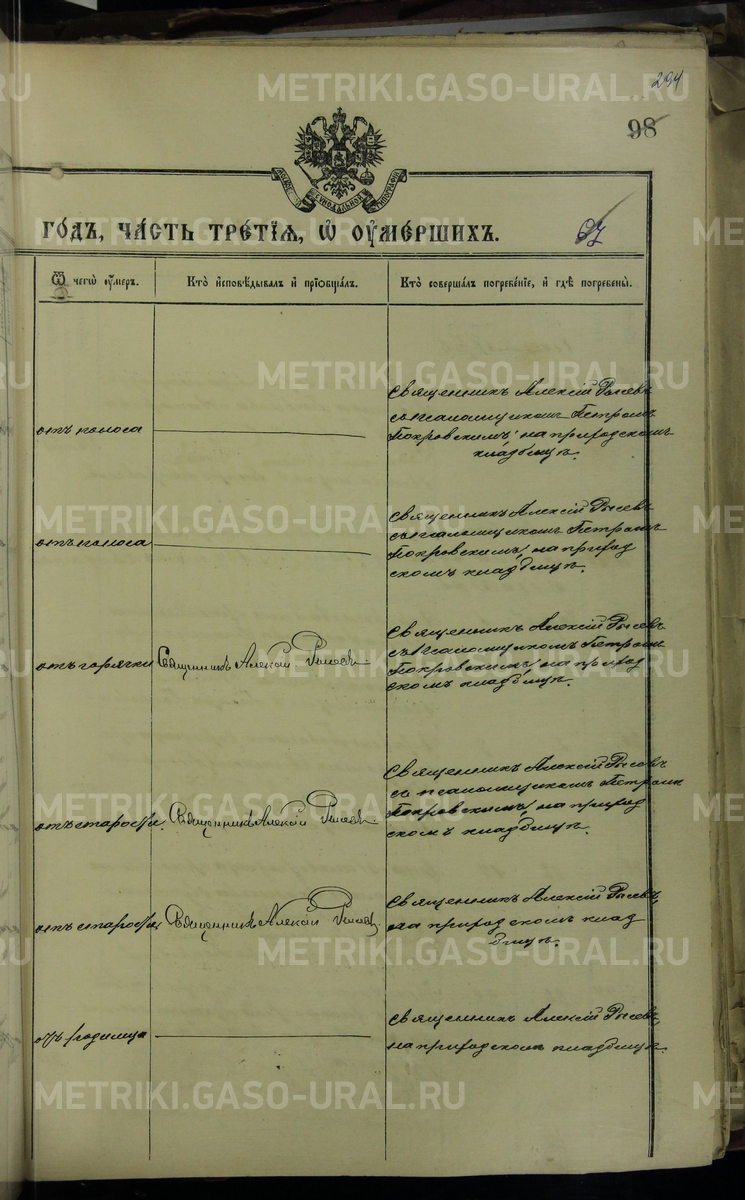 294
98
СѴНОДАЛЬНОЙ
ТИПОГРАФІИ
67
ГО́ДЪ, ЧА́СТЬ ТРЕ́ТІѦ, Ѡ ОУМЕ́РШИХЪ.
Ѿ чегѡ̀ оу́меръ.
Кто̀ и҆сповѣ́дывалъ и҆ прїѻбща́лъ.
Кто̀ соверша́лъ погребе́нїе, и҆ гдѣ̀ погребены̀.
отъ поноса
Священникъ Алексій
съ псаломщикомъ Петромъ
Покровскимъ, на приходскомъ
кладбищѣ.
отъ поноса
Священникъ Алексій
съ псаломщикомъ Петромъ
Покровскимъ, на приход
скомъ кладбищѣ.
отъ горячки
Священникъ Алексій
Священникъ Алексій
съ псаломщикомъ Петромъ
Покровскимъ, на приход
скомъ кладбищѣ.
отъ старости
Священникъ Алексій
Священникъ Алексій
съ псаломщикомъ Петромъ
Покровскимъ, на приход
скомъ кладбищѣ.
отъ старости
Священникъ Алексій
Священникъ Алексій
на приходскомъ клад
бищѣ.
отъ родимца
Священникъ Алексій
на приходскомъ кладбищѣ.
METRIKI.GASO-URAL.RU